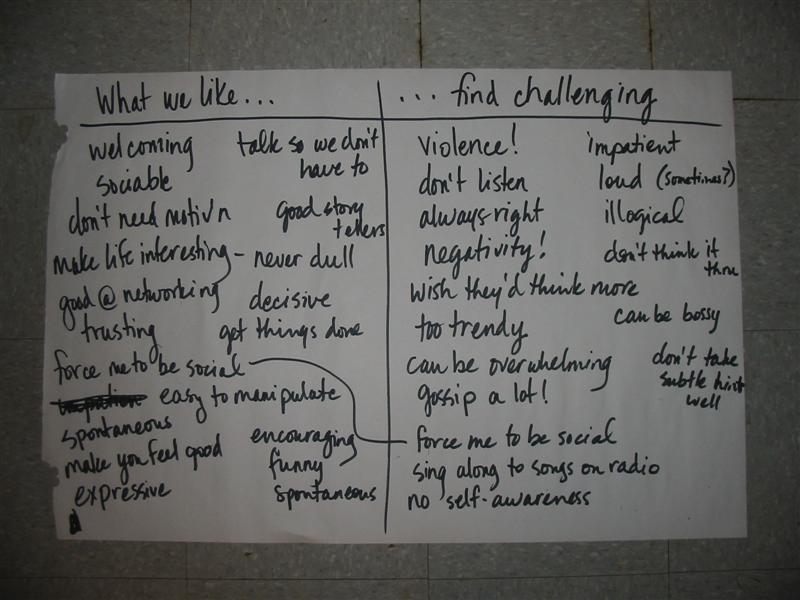 What we like...
welcoming
sociable
don't need motiv'n
make life interesting -
good @ networking
trusting
force me to be social
easy to manipulate
spontaneous
make you feel good
expressive
talk so we don't
have to
good story
tellers
never dull
decisive
get things done
encouraging
funny
spontaneous
... find challenging
violence!
don't listen
always right
negativity!
wish they'd think more
too trendy
can be overwhelming
gossip a lot!
force me to be social
sing along to songs on radio
no self-awareness
impatient
loud (sometimes?)
illogical
don't think it
thru
can be bossy
don't take
subtle hint
well